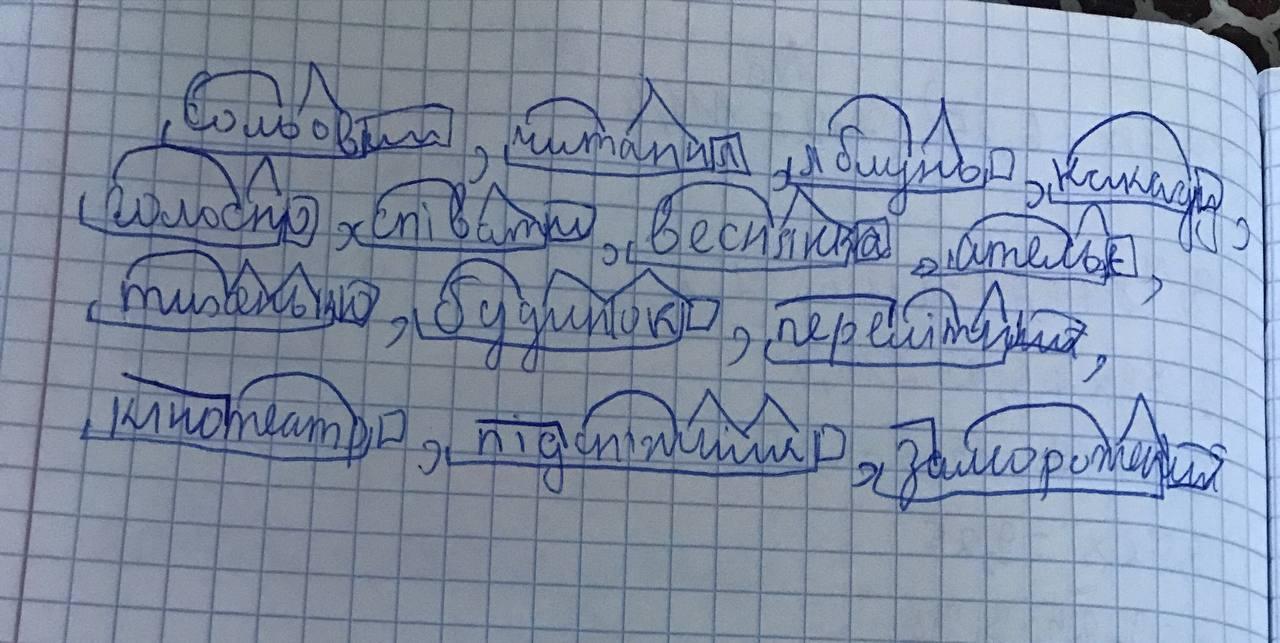 Сольовий, питання, яблунь, какаду,
голосно, співати, веснянка, ательє,
тижнево, будинок, перелітний,
кінотеатр, підсніжник, заморожений